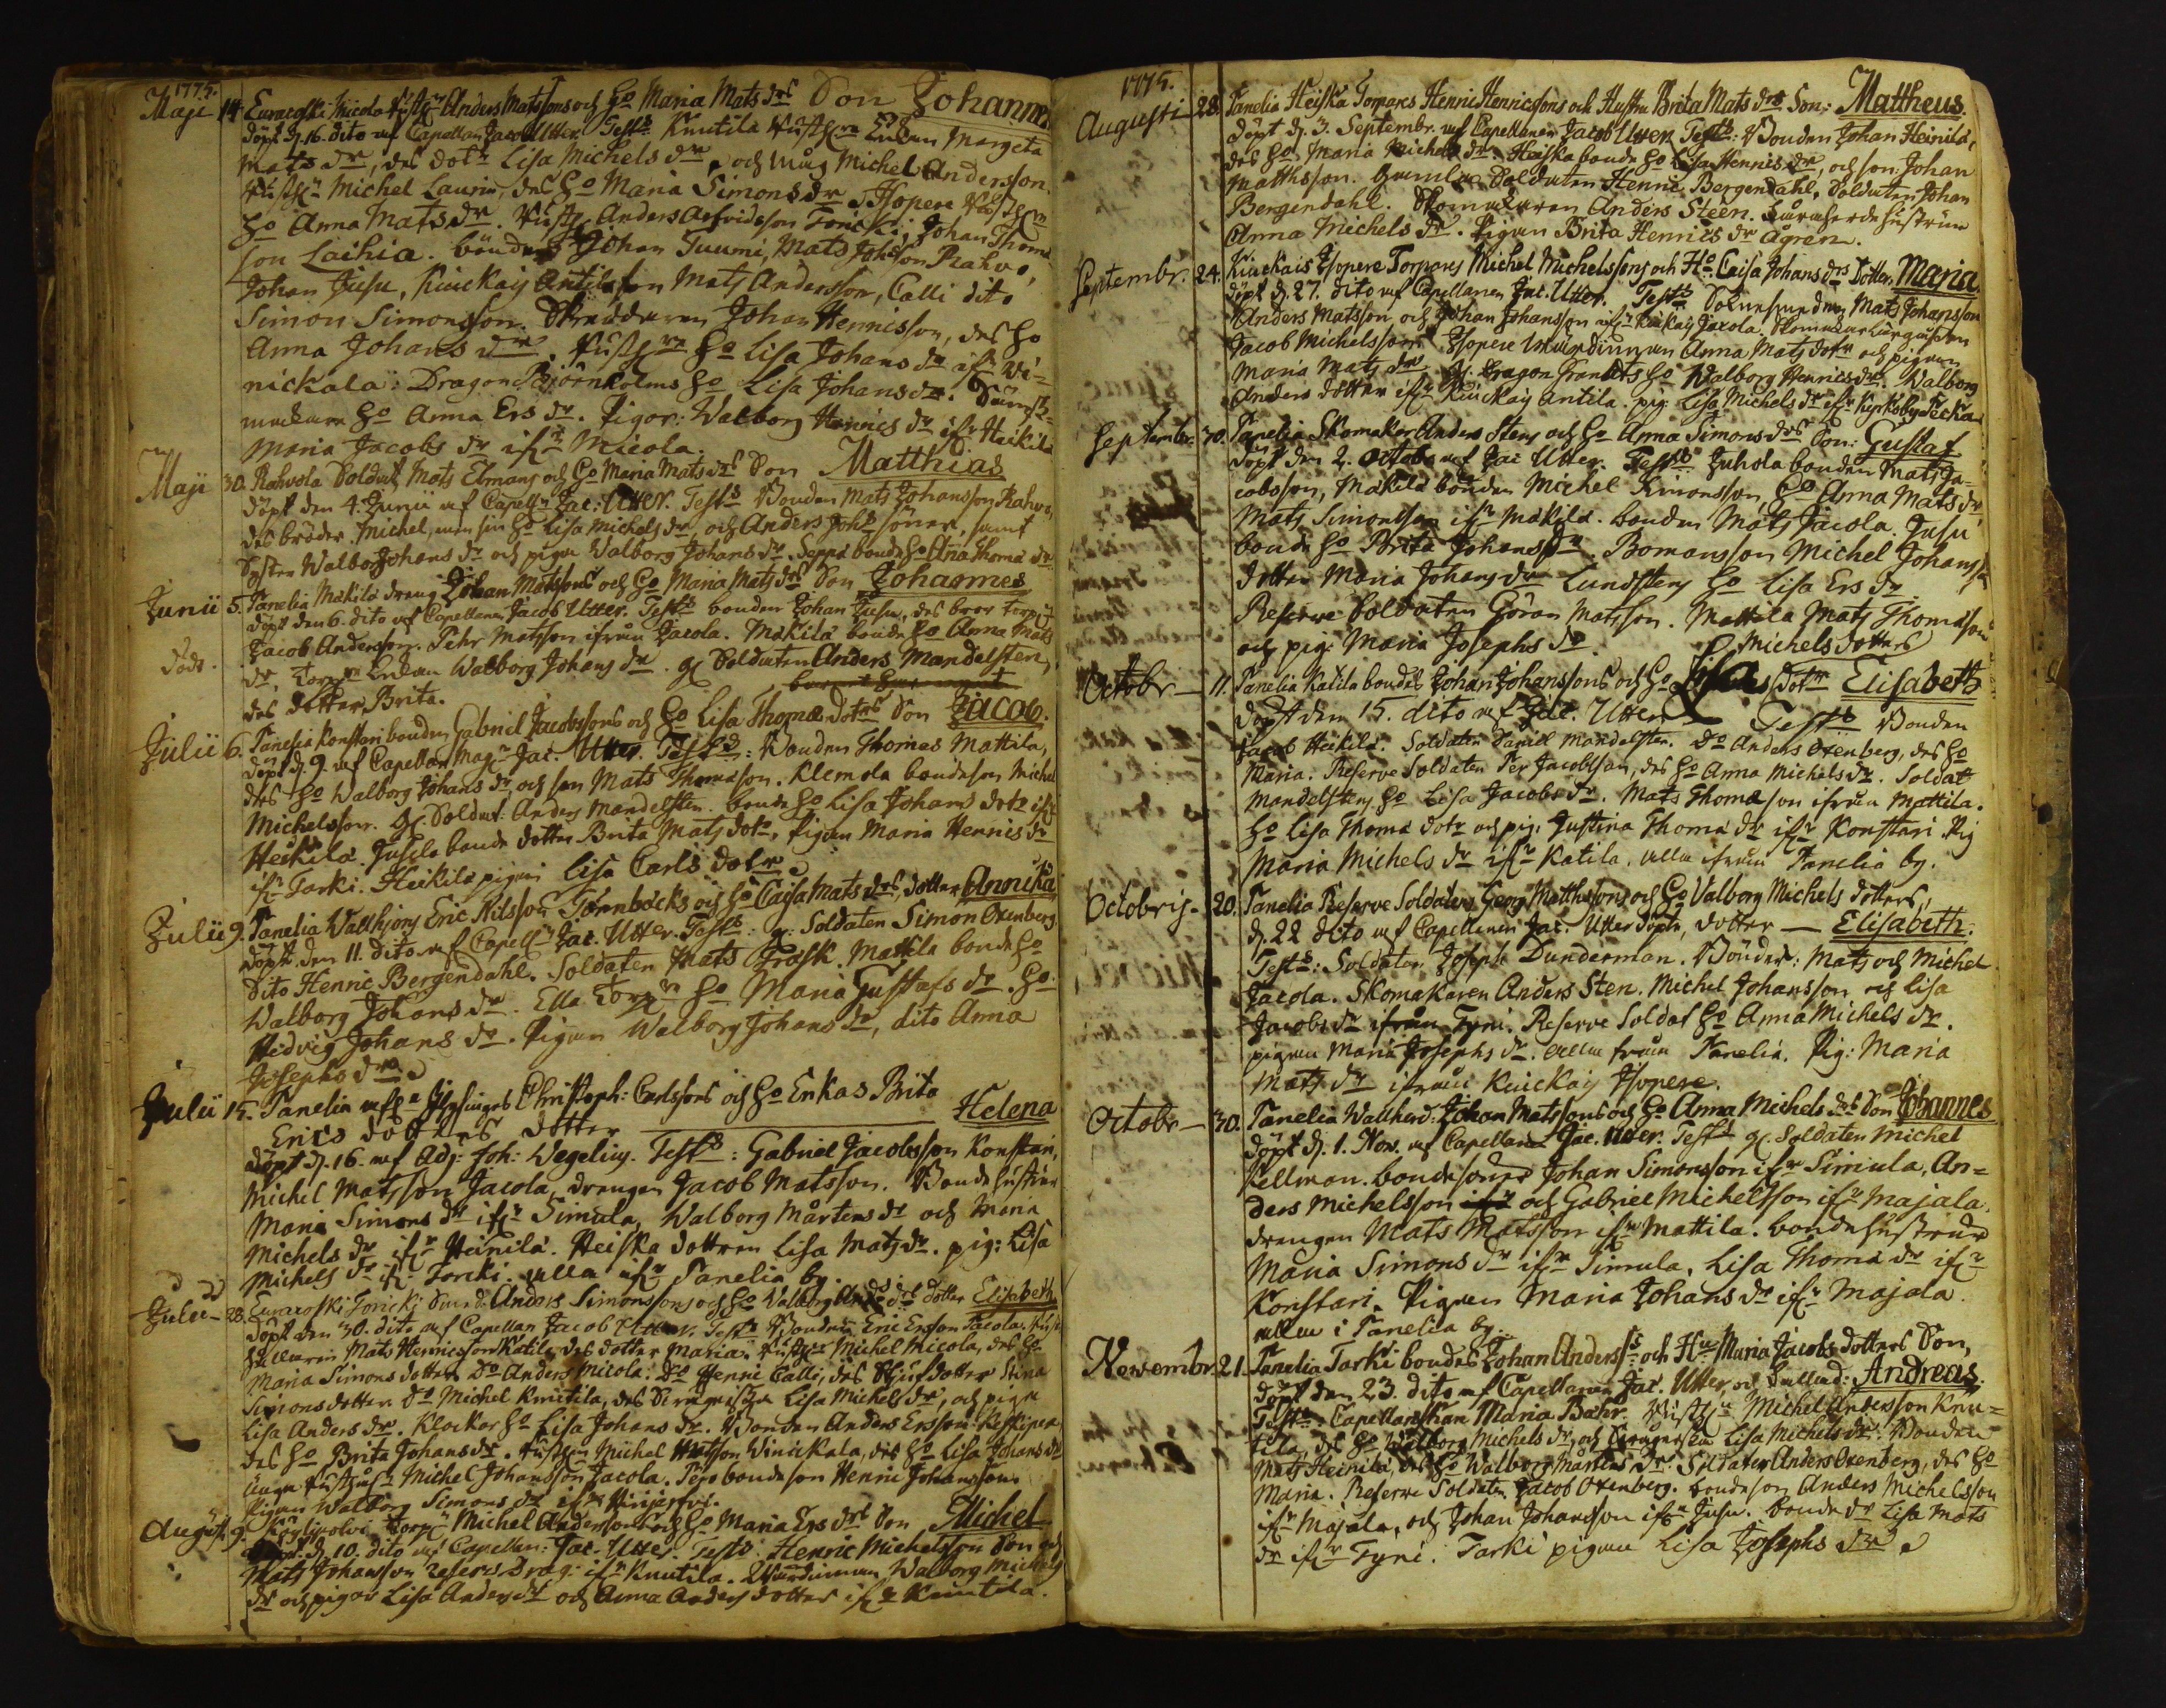 1775.
Maji 14. Euraåski Micola Anders Matssons och Ho Maria Mats drs Son Johannes
döpt d. 16. dito af Capellan Jacob Utter. Tests Knutila Enkan Margeta
Mats dr, des dotr Lisa Michels dr, och Michel Andersson.
Michel Laurin, des Ho Maria Simons dr. Isopere
Ho Anna Mats dr. Anders Arfvidsson Torcki, Johan Thomæ
son Laihia. bönder Johan Tuumi, Mats Johsson Rahvo,
Johan Jusu, Kuickais Antila son Mats Andersson, Calli dito
Simon Simonsson. Skräddaren Johan Henricsson, des Ho
Anna Johans dr. Ho Lisa Johans dr af Wi=
nickala: Dragon Björnholms Ho Lisa Johans dr.
makare Ho Anna Ers dr. Pigor: Walborg Henrics dr ifr Heikilä
Maria Jacobs dr ifr Micola.
Maji 30. Rahvola Soldat Mats Elmans och Ho Maria Mats drs Son Matthias
döpt den 4. Junii af Capelln Jac: Utter. Tests Bonden Mats Johansson Rahvo,
des bröder Michel, med sin Ho Lisa Michels dr och Anders Johs söner, samt
Syster Walborg Johans dr och pigan Walborg Johans dr. Seppä bonde Ho Ana Thomæ dr
Junii 5. Panelia Mäkilä dräng Johan Matssons och Ho Maria Mats drs Son Johannes
döpt den 6. dito af Capellanen Jacob Utter. Tests bonden Johan Jusu, des bror
Jacob Andersson. Pehr Matsson ifrån Jacola. Mäkilä bonde Ho Anna Mats
död.
dr, Enkan Walborg Johans dr. gl Soldaten Anders Mandelsten,
des dotter Brita.
Julii 6. Panelia Konstari bonden Gabriel Jacobssons och Ho Lisa Thomæ dotrs Son Jacob.
döpt d. 9. af Capellan Magr Jac. Utter. Tests: Bonden Thomas Mattila,
des Ho Walborg Johans dr, och son Mats Thomæson. Klemola bondeson Michel
Michelsson. gl. Soldat: Anders Mandelsten. bonde Ho Lisa Johans dotr ifr
Heikilä. Jusela bonde dotter Brita Mats dotr, Pigan Maria Henrics dr
ifr Tarki. Heikilä pigan Lisa Carls dotr
Julii 9. Panelia Wallhjons Eric Nilsson Törnbäcks och Ho Caisa Mats drs, dotter Annika
döpt den 11. dito af Capelln Jac. Utter. Tests: gl: Soldaten Simon Oxenberg
dito Henric Bergendahl. Soldaten Mats Frask. Mattila bonde Ho
Walborg Johans dr. Ella Torpn Ho Maria Gustafs dr. Ho:
Hedvig Johans dr. Pigan Walborg Johans dr, dito Anna
Josephs dr.
Julii 15. Panelia Christoph: Carlssons och Ho Enkas Brita
Erics dotters dotter Helena
döpt d. 16. af Adj: Joh: Wegelius. Tests: Gabriel Jacobsson Konstari,
Michel Matsson Jacola, drengen Jacob Matsson. Bonde hustrun
Maria Simons dr ifr Simula, Walborg Mårtens dr och Maria
Michels dr ifr Heinilä. Heiska dottren Lisa Mats dr. pig: Lisa
Michels dr ifr Torcki. alla ifr Panelia by.
Julii 28. Euraåski Torcki Anders Simonssons och Ho Walborg Anders drs dotter Elisabeth
döpt den 30. dito af Capellan Jacob Utter. Tests Bonden Eric Ersson Jacola.
Mats Henricsson Katila, des dotter Maria. Michel Micola, des Ho
Maria Simons dotter. Do Anders Micola: Do Henric Calli, des dotter Stina
Simons dotter. Do Michel Knutila, des Lisa Michels dr, och pigan
Lisa Anders dr. Klockar Ho Lisa Johans dr. Bonden Anders Ersson
des Ho Brita Johans dr. Michel Matsson Winickala, des Ho Lisa Johans dr
Michel Johansson Jacola. Pero bondeson Henric Johansson.
Pigan Walborg Simons dr ifr
August. 9. Torpn Michel Anderssons och Ho Maria Ers drs Son Michel
d. 10. dito af Capellan: Jac. Utter. Tests: Henric Michelsson
Mats Johansson reserv Drag: ifr Knutila. Wärdinnan Walborg Michels
dr och pigor Lisa Anders dr och Anna Anders dotter ifr Knutila.
1775.
Augusti 28. Panelia Heiska Torpares Henric Henricsons och Hustru Brita Mats drs Son: Mattheus.
döpt d. 3. Septembr. af Capellanen Jacob Utter. Tests: Bonden Johan Heinilä,
des Ho Maria Michels dr. Heiska bonde Ho Lisa Henrics dr, och son Johan
Matthsson. Gamla Soldaten Henric Bergendahl, Soldaten Johan
Bergendahl. Skomakaren Anders Steen. hustrun
Anna Michels dr. Pigan Brita Henrics dr Ågren.
Septembr. 24. Kiuckais Isopere Torpares Michel Michelssons och Ho Caisa Johans drs Dotter Maria.
döpt d. 27. dito af Capellanen Jac. Utter. Tests Mats Johansson
Anders Matsson och Johan Johansson ifr Kuckais Jacola.
Jacob Michelsson. Isopere Wärdinnan Anna Mats dotr och pigan
Maria Mats dr. gl. Dragon Granlats Ho Walborg Henrics dr. Walborg
Anders dotter ifr Kiuckais Antila. pig. Lisa Michels dr ifr
Septembr. 30. Panelia Skomakar Anders Stens och Ho Anna Simons drs Son: Gustaf
döpt den 2. Octobr af Jac Utter. Tests: Juhola bonden Mats Ja=
cobsson, Mäkilä bonden Michel Simonsson, Ho Anna Mats dr,
Mats Simonsson ifr Mäkilä. bonden Mats Jacola. Jusu
bonde Ho Brita Johans dr. Bomansson Michel Johansson
dotter Maria Johans dr. Lundstens Ho Lisa Ers dr.
Reserve Soldaten Göran Matsson. Mattila Mats Thomæson
och pig: Maria Josephs dr.
Michels dotters
Octobr — 11. Panelia Katila bondes Johan Johanssons och Ho Lisas dotr Elisabeth
döpt den 15. dito af Jac. Utter. Tests Bonden
Jacob Heikilä. Soldaten Daniel Mandelsten. Do Anders Oxenberg, des Ho
Maria. Reserve Soldaten Per Jacobsson, des Ho Anna Michels dr. Soldat
Mandelstens Ho Lisa Jacobs dr. Mats Thomæson ifrån Mattila.
Ho Lisa Thomæ dotr och pig: Justina Thomæ dr ifr Konstari. Pig
Maria Michels dr ifr Katila. alla ifrån Panelia by.
Octobris. 20. Panelia Reserve Soldatens Georg Matthssons och Ho Valborg Michels dotters,
d. 22 dito af Capellanen Jac. Utter döpte, dotter — Elisabeth.
Tests: Soldaten Joseph Dunderman. Bönder: Mats och Michel
Jacola. Skomakaren Anders Sten. Michel Johansson och Lisa
Jacobs dr ifrån Tyni. Reserve Soldat Ho Anna Michels dr.
pigan Maria Josephs dr. alla från Panelia. Pig: Maria
Mats dr ifrån Kuickais Isopere.
Octobr — 30. Panelia Wallherd: Johan Matssons och Ho Anna Michels drs Son Johannes
döpt d. 1. Nov. af Capellan Jac. Utter. Tests gl. Soldaten Michel
Kellman. bondesöner Johan Simonsson ifr Simula, An=
ders Michelsson och Gabriel Michelsson ifr Majala.
drengen Mats Matsson ifr Mattila. bondehustrur
Maria Simons dr ifr Simula, Lisa Thomæ dr ifr
Konstari. Pigan Maria Johans dr ifr Majala.
alla i Panelia by.
Novembr. 21. Panelia Tarki bondes Johan Anderss och Hu Maria Jacobs dotters Son,
döpt den 23. dito af Capellanen Jac. Utter, och kallad: Andreas.
Tests: Capellanskan Maria Bæhr. Michel Andersson Knu=
tila, des Ho Walborg Michels dr, och Lisa Michels dr. Bonden
Mats Heinilä, des Ho Walborg Mårtens dr. Soldaten Anders Oxenberg, des Ho
Maria. Reserve Soldaten Jacob Oxenberg. bondeson Anders Michelsson
ifr Majala, och Johan Johansson ifr Jusu. bonde dr Lisa Mats
dr ifr Tyni. Tarki pigan Lisa Josephs dr